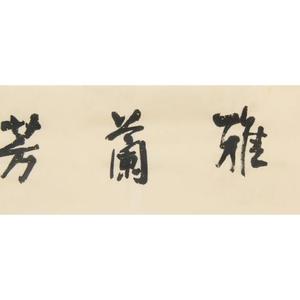 雅蘭芳